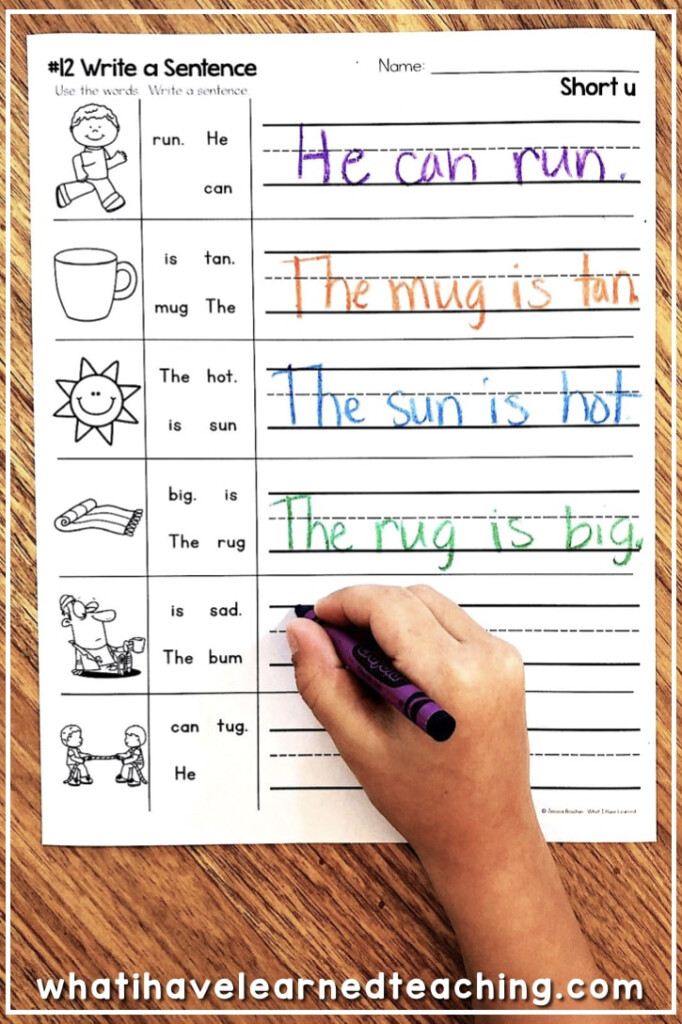 #12 Write a Sentence
Name:
Short u
Use the words. Write a sentence.
run. He
can
He can run.
is tan.
mug The
The mug is tan.
The hot.
is sun
The sun is hot
big. is
The rug
The rug is big.
is sad.
The bum
can tug.
He
Crayola
© Jessica Boschen What I Have Learned
whatihavelearnedteaching.com